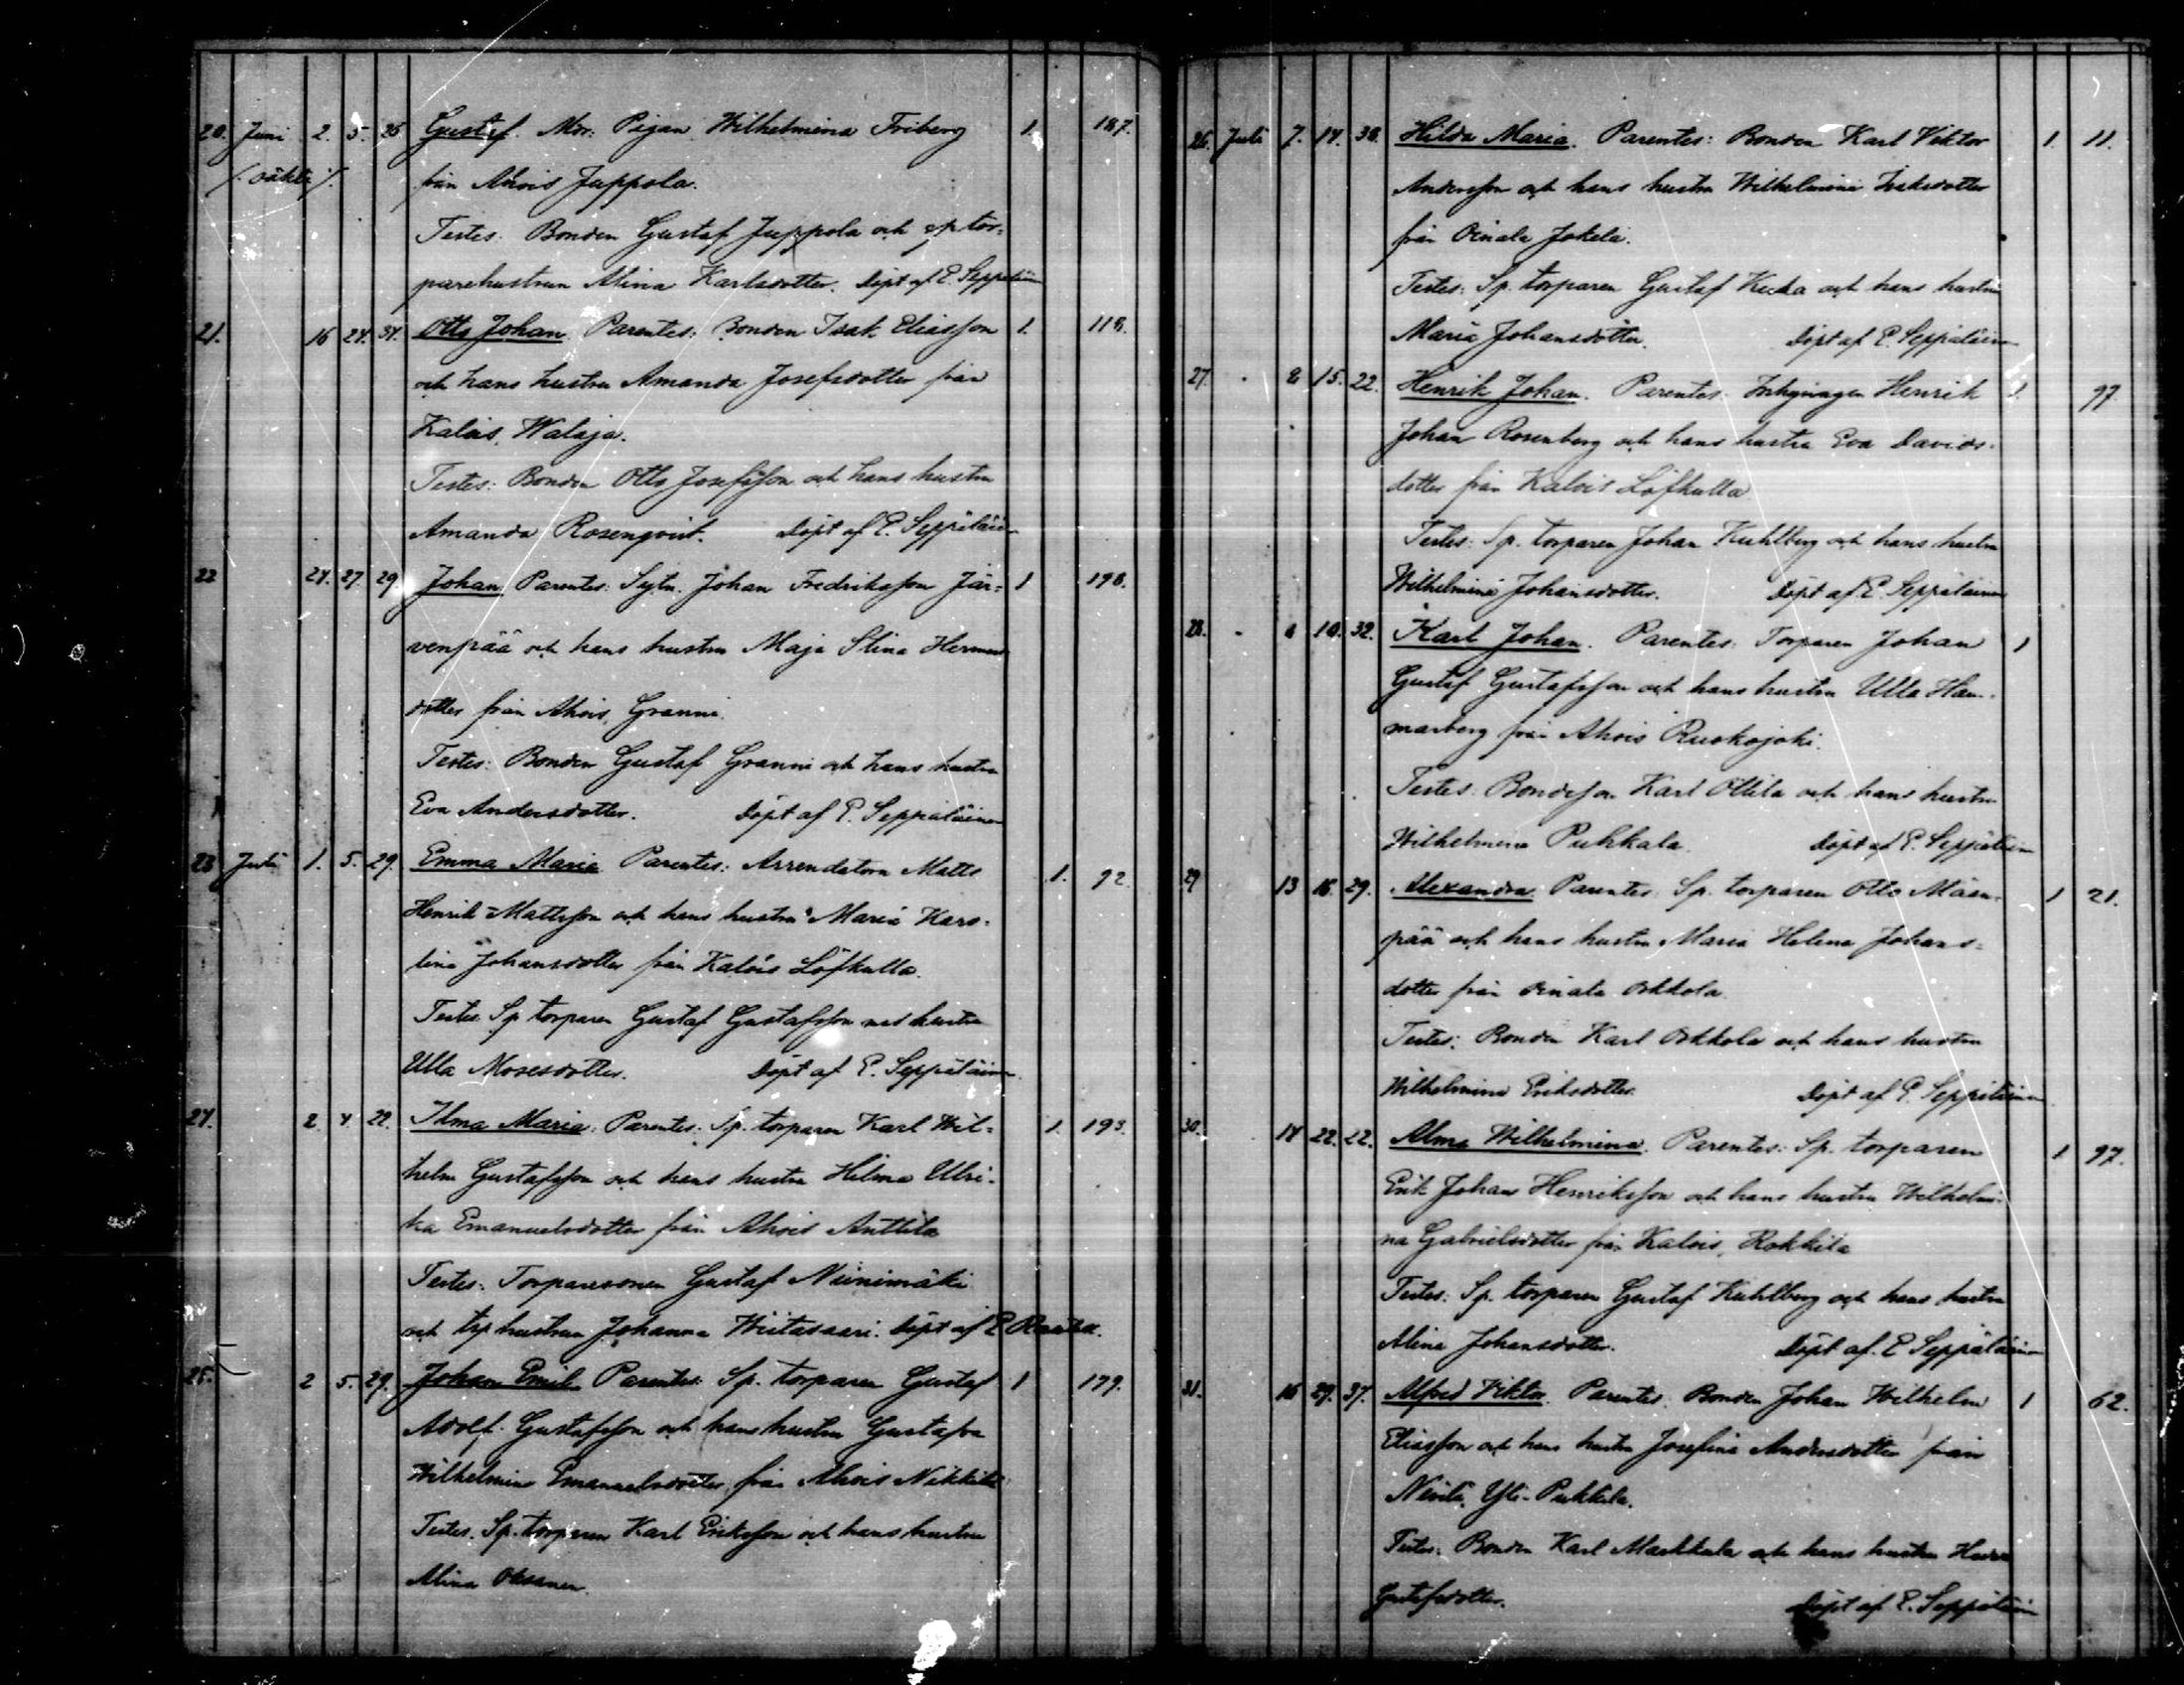 20. Juni 2. 5. 26 Gustaf. Mor: Pigan Wilhelmina Friberg 1. 187.
/: oäkta :/ från Ahois Juppola.
Testes: Bonden Gustaf Juppola och sp tor-
parehustrun Alina Karlsdotter. Döpt af E. Seppäläinen
21. 16 24. 34. Otto Johan Parentes: Bonden Isak Eliasson 1. 118.
och hans hustru Amanda Josefsdotter från
Kalois, Walaja.
Testes: Bonden Otto Josefsson och hans hustru
Amanda Rosenqvist. Döpt af E. Seppäläinen
22 24. 27 29. Johan Parentes: Sytn. Johan Fredriksson Jär- 1 198.
venpää och hans hustru Maja Stina Hermans
dotter från Ahois, Granni.
Testes: Bonden Gustaf Granni och hans hustru
Eva Andersdotter. Döpt af E. Seppäläinen
23 Juli 1. 5. 29. Emma Maria Parentes: Arrendatorn Matts 1. 92.
Henrik Mattsson och hans hustru Maria Karo-
lina Johansdotter från Kalois Löfkulla.
Testes Sp torparen Gustaf Gustafsson med hustru
Ulla Mosesdotter. Döpt af E. Seppäläinen
24. 2. 4. 22. Ilma Maria. Parentes: Sp. torparen Karl Wil- 1. 193.
helm Gustafsson och hans hustru Hilma Ulri-
ka Emanuelsdotter från Ahois Anttila
Testes: Torparesonen Gustaf Niinimäki
och trp hustrun Johanna Wiitasaari. Döpt af E
25. 2 5. 29. Johan Emil Parentes: Sp. torparen Gustaf 1 179.
Adolf Gustafsson och hans hustru Gustafva
Wilhelmina Emanuelsdotter från Ahois Nikkilä
Testes. Sp. torparen Karl Eriksson och hans hustru
Alina Oksanen.
26. Juli 7. 14. 38. Hilda Maria. Parentes: Bonden Karl Viktor 1 11.
Andersson och hans hustru Wilhelmina Isaksdotter
från Oinala Jokela.
Testes: Sp. torparen Gustaf och hans hustru
Maria Johansdotter. Döpt af E. Seppäläinen
27. 8 15. 22. Henrik Johan. Parentes: Inhysingen Henrik 1. 97.
Johan Rosenberg och hans hustru Eva Davids-
dotter från Kalois Löfkulla
Testes: Sp. torparen Johan Kuhlberg och hans hustru
Wilhelmina Johansdotter. Döpt af E Seppäläinen
28. 8 10. 32. Karl Johan. Parentes: Torparen Johan 1
Gustaf Gustafsson och hans hustru Ulla Ham-
marberg från Ahois Ruokojoki.
Testes: Bondeson Karl Ollila och hans hustru
Wilhelmina Puhkala. Döpt af E. Seppäläinen
29 13 16. 29. Alexandra. Parentes: Sp. torparen Otto Mäen- 1 21.
pää och hans hustru Maria Helena Johans-
dotter från Oinala Orkkola.
Testes: Bonden Karl Orkkola och hans hustru
Wilhelmina Eriksdotter. Döpt af E. Seppäläinen
30. 14 22. 22. Alma Wilhelmina. Parentes: Sp. torparen 1 97.
Erik Johan Henriksson och hans hustru Wilhelmi-
na Gabrielsdotter från Kalois, Rokkila
Testes: Sp. torparen Gustaf Kuhlberg och hans hustru
Alina Johansdotter. Döpt af. E Seppäläinen
31. 16 29. 37. Alfred Viktor. Parentes: Bonden Johan Wilhelm 1 62.
Eliasson och hans hustru Josefina Andersdotter från
Yli-Pukkila.
Testes: Bonden Karl Markkula och hans hustru
Gustafsdotter. Döpt af E. Seppäläinen